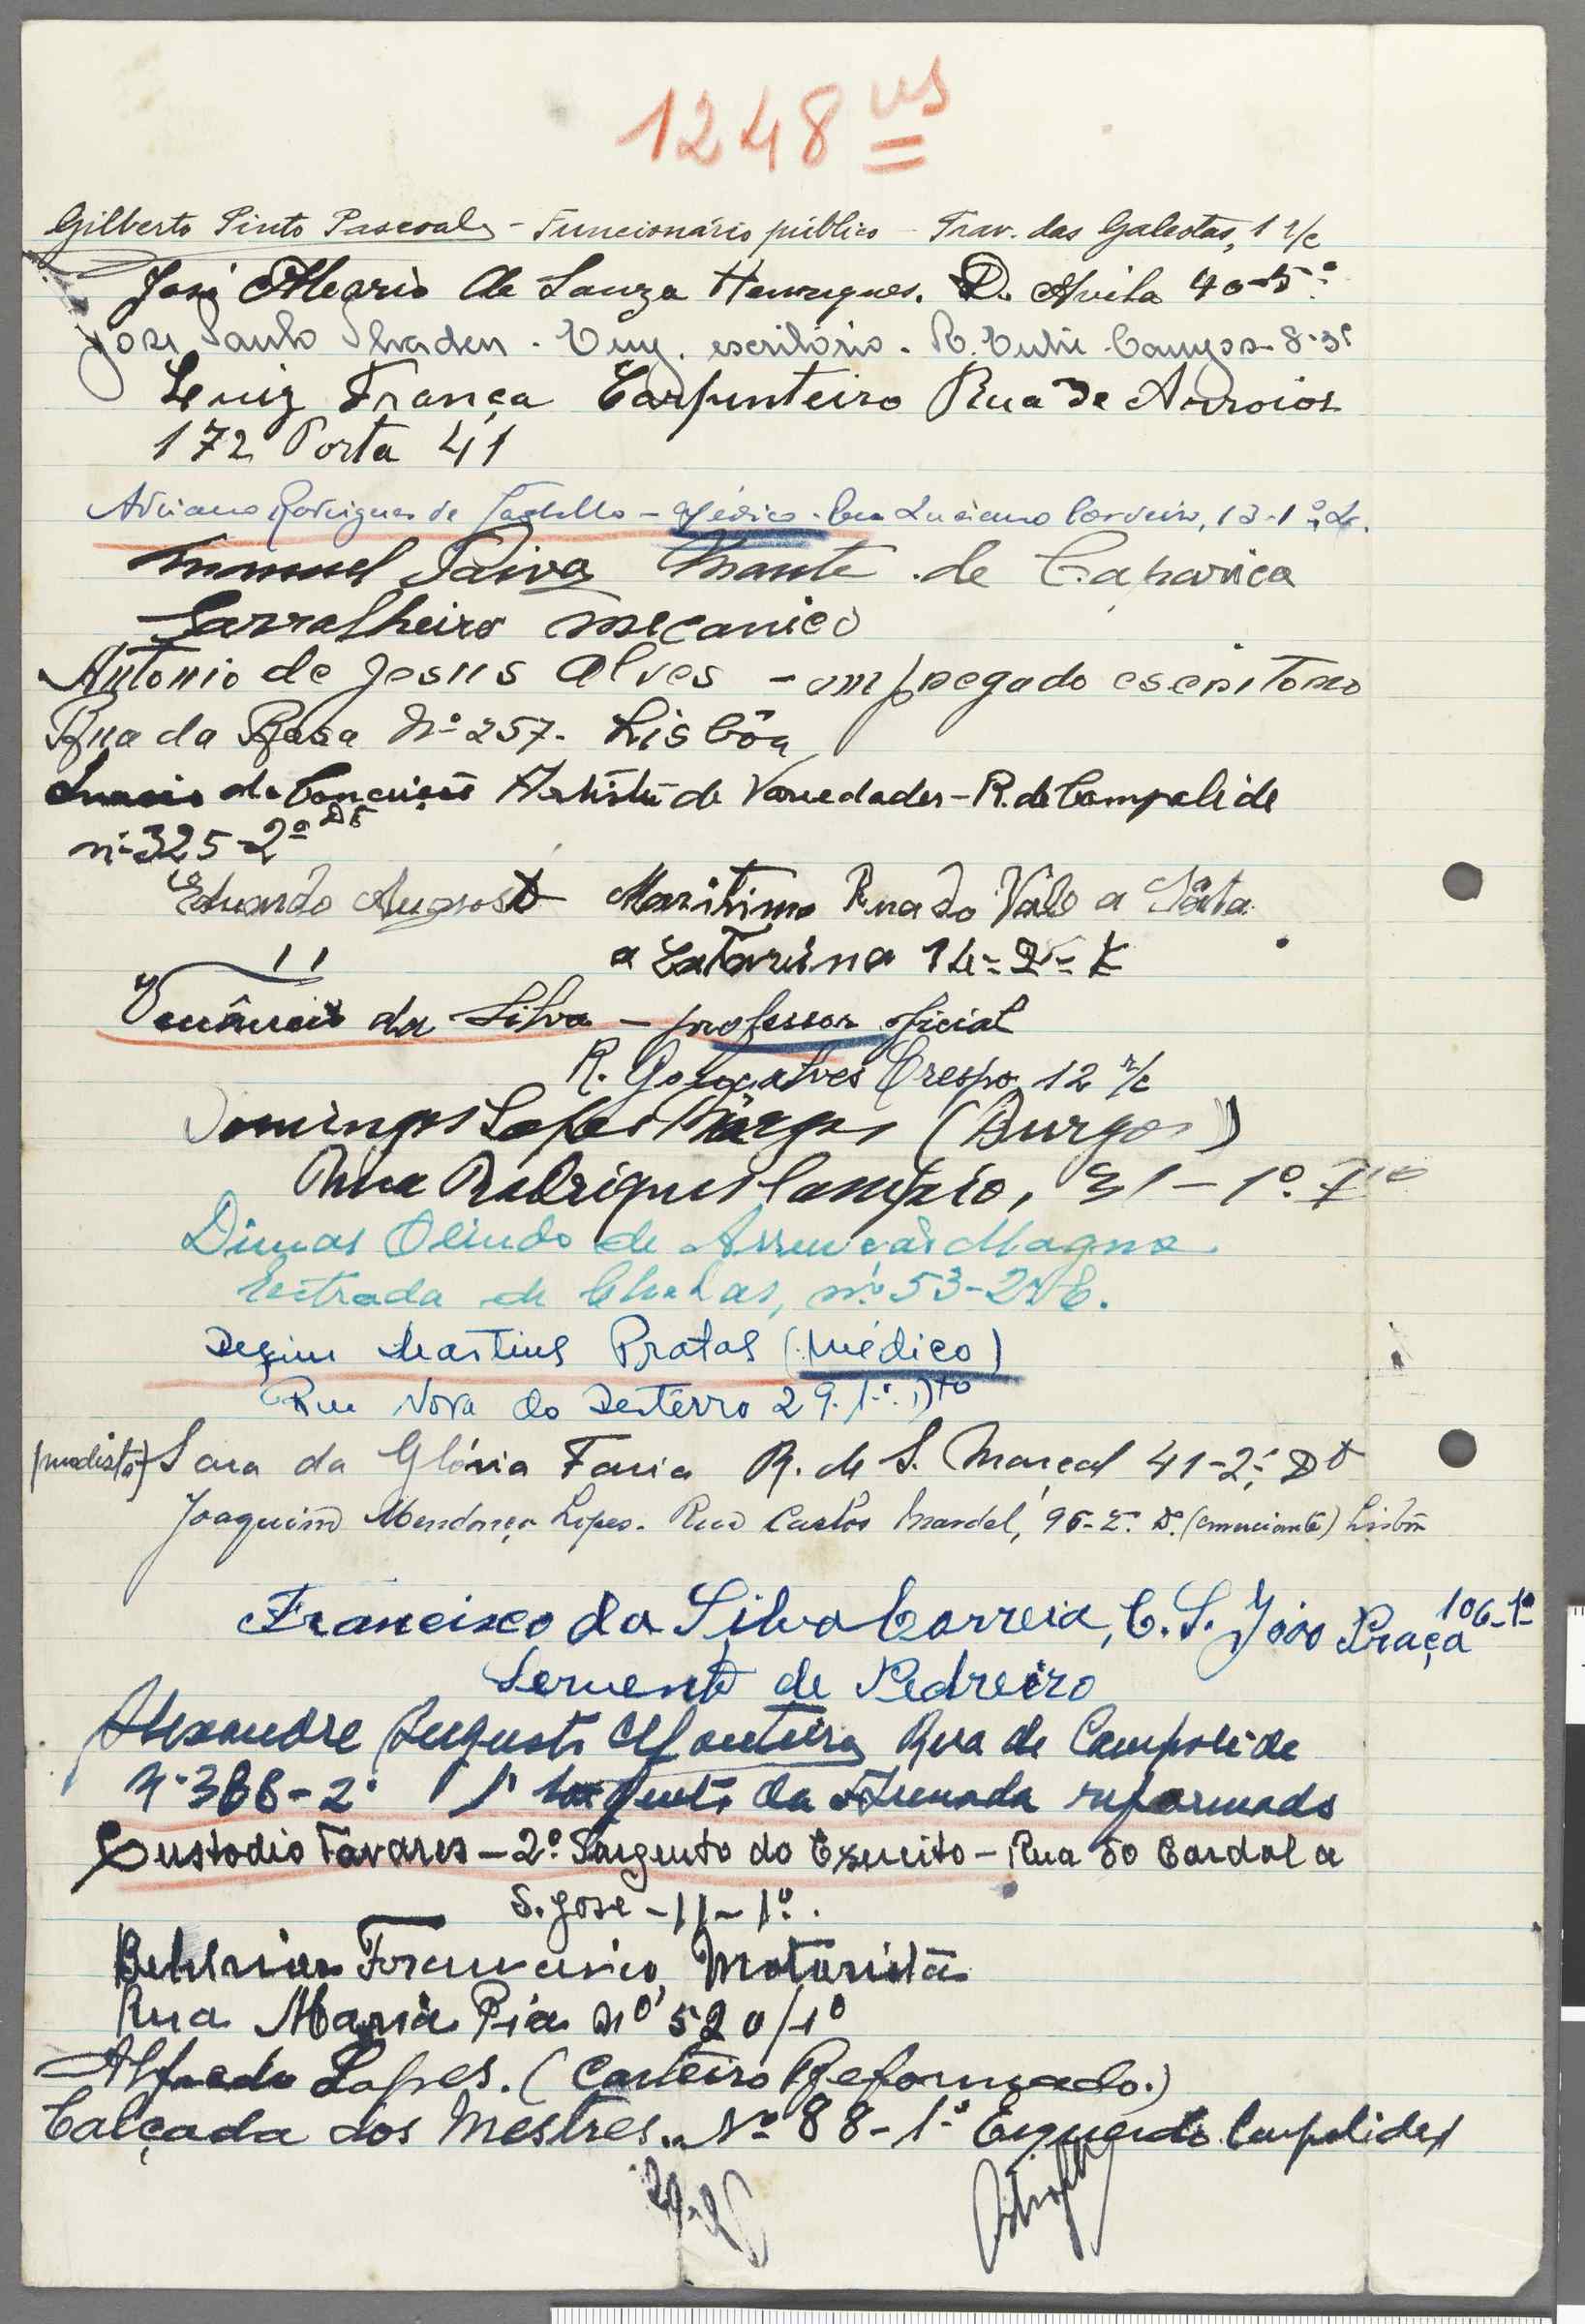 1248 vs
Gilberto Pinto Pascoal - Funcionário público - Trav. das Galeotas, 1 r/c
José Alegria de Souza Henriques. D. Avila 40-5º
Jose Paulo - Emp. escritório - R. 8-3º
Luiz França Carpinteiro Rua de Arroios
172 Porta 41
Adriano Rodrigues de Castello - Médico - Rua Luciano Cordeiro, 13-1º
Manuel Paiva Monte de Caparica
Serralheiro mecanico
Antonio de Jesus Alves - empregado escritorio
Rua da Rosa Nº 257. Lisbôa
da Conceição Artista de Variedades - R. de Campolide
nº 325-2º Dt
Eduardo Augusto Maritimo Rua do Vale a Santa
11 a Catarina 14-2º-E
Venâncio da Silva - professor oficial
R. Gonçalves Crespo 12 r/c
Domingos Lopes Burgos (Burgos)
Rua Rodrigues Sampaio, 31-1º
Dimas Olindo de Magno
Estrada de Chelas, nº 53-2º E.
Martins Pratas (Médico)
Rua Nova do Desterro 29. 1º. Dto
(modista) Sara da Glória Faria R. de S. Marçal 41-2º Dt
Joaquim Mendonça Lopes. Rua Carlos Mardel, 95-2º. D. (comerciante) Lisboa
Francisco da Silva Correia, C. S. João Praça 106-1º
Servente de Pedreiro
Alexandre Augusto Monteiro Rua de Campolide
Nº 388-2º 1º Sargento da Armada reformado
Custodio Tavares - 2º Sargento do Exercito - Rua do Cardal a
S. José - 11 - 1º.
Francisco Motorista
Rua Maria Pia nº 520/1º
Alfredo Lopes. (Carteiro Reformado.)
Calçada dos Mestres.. Nº 88-1º Esquerdo Campolide